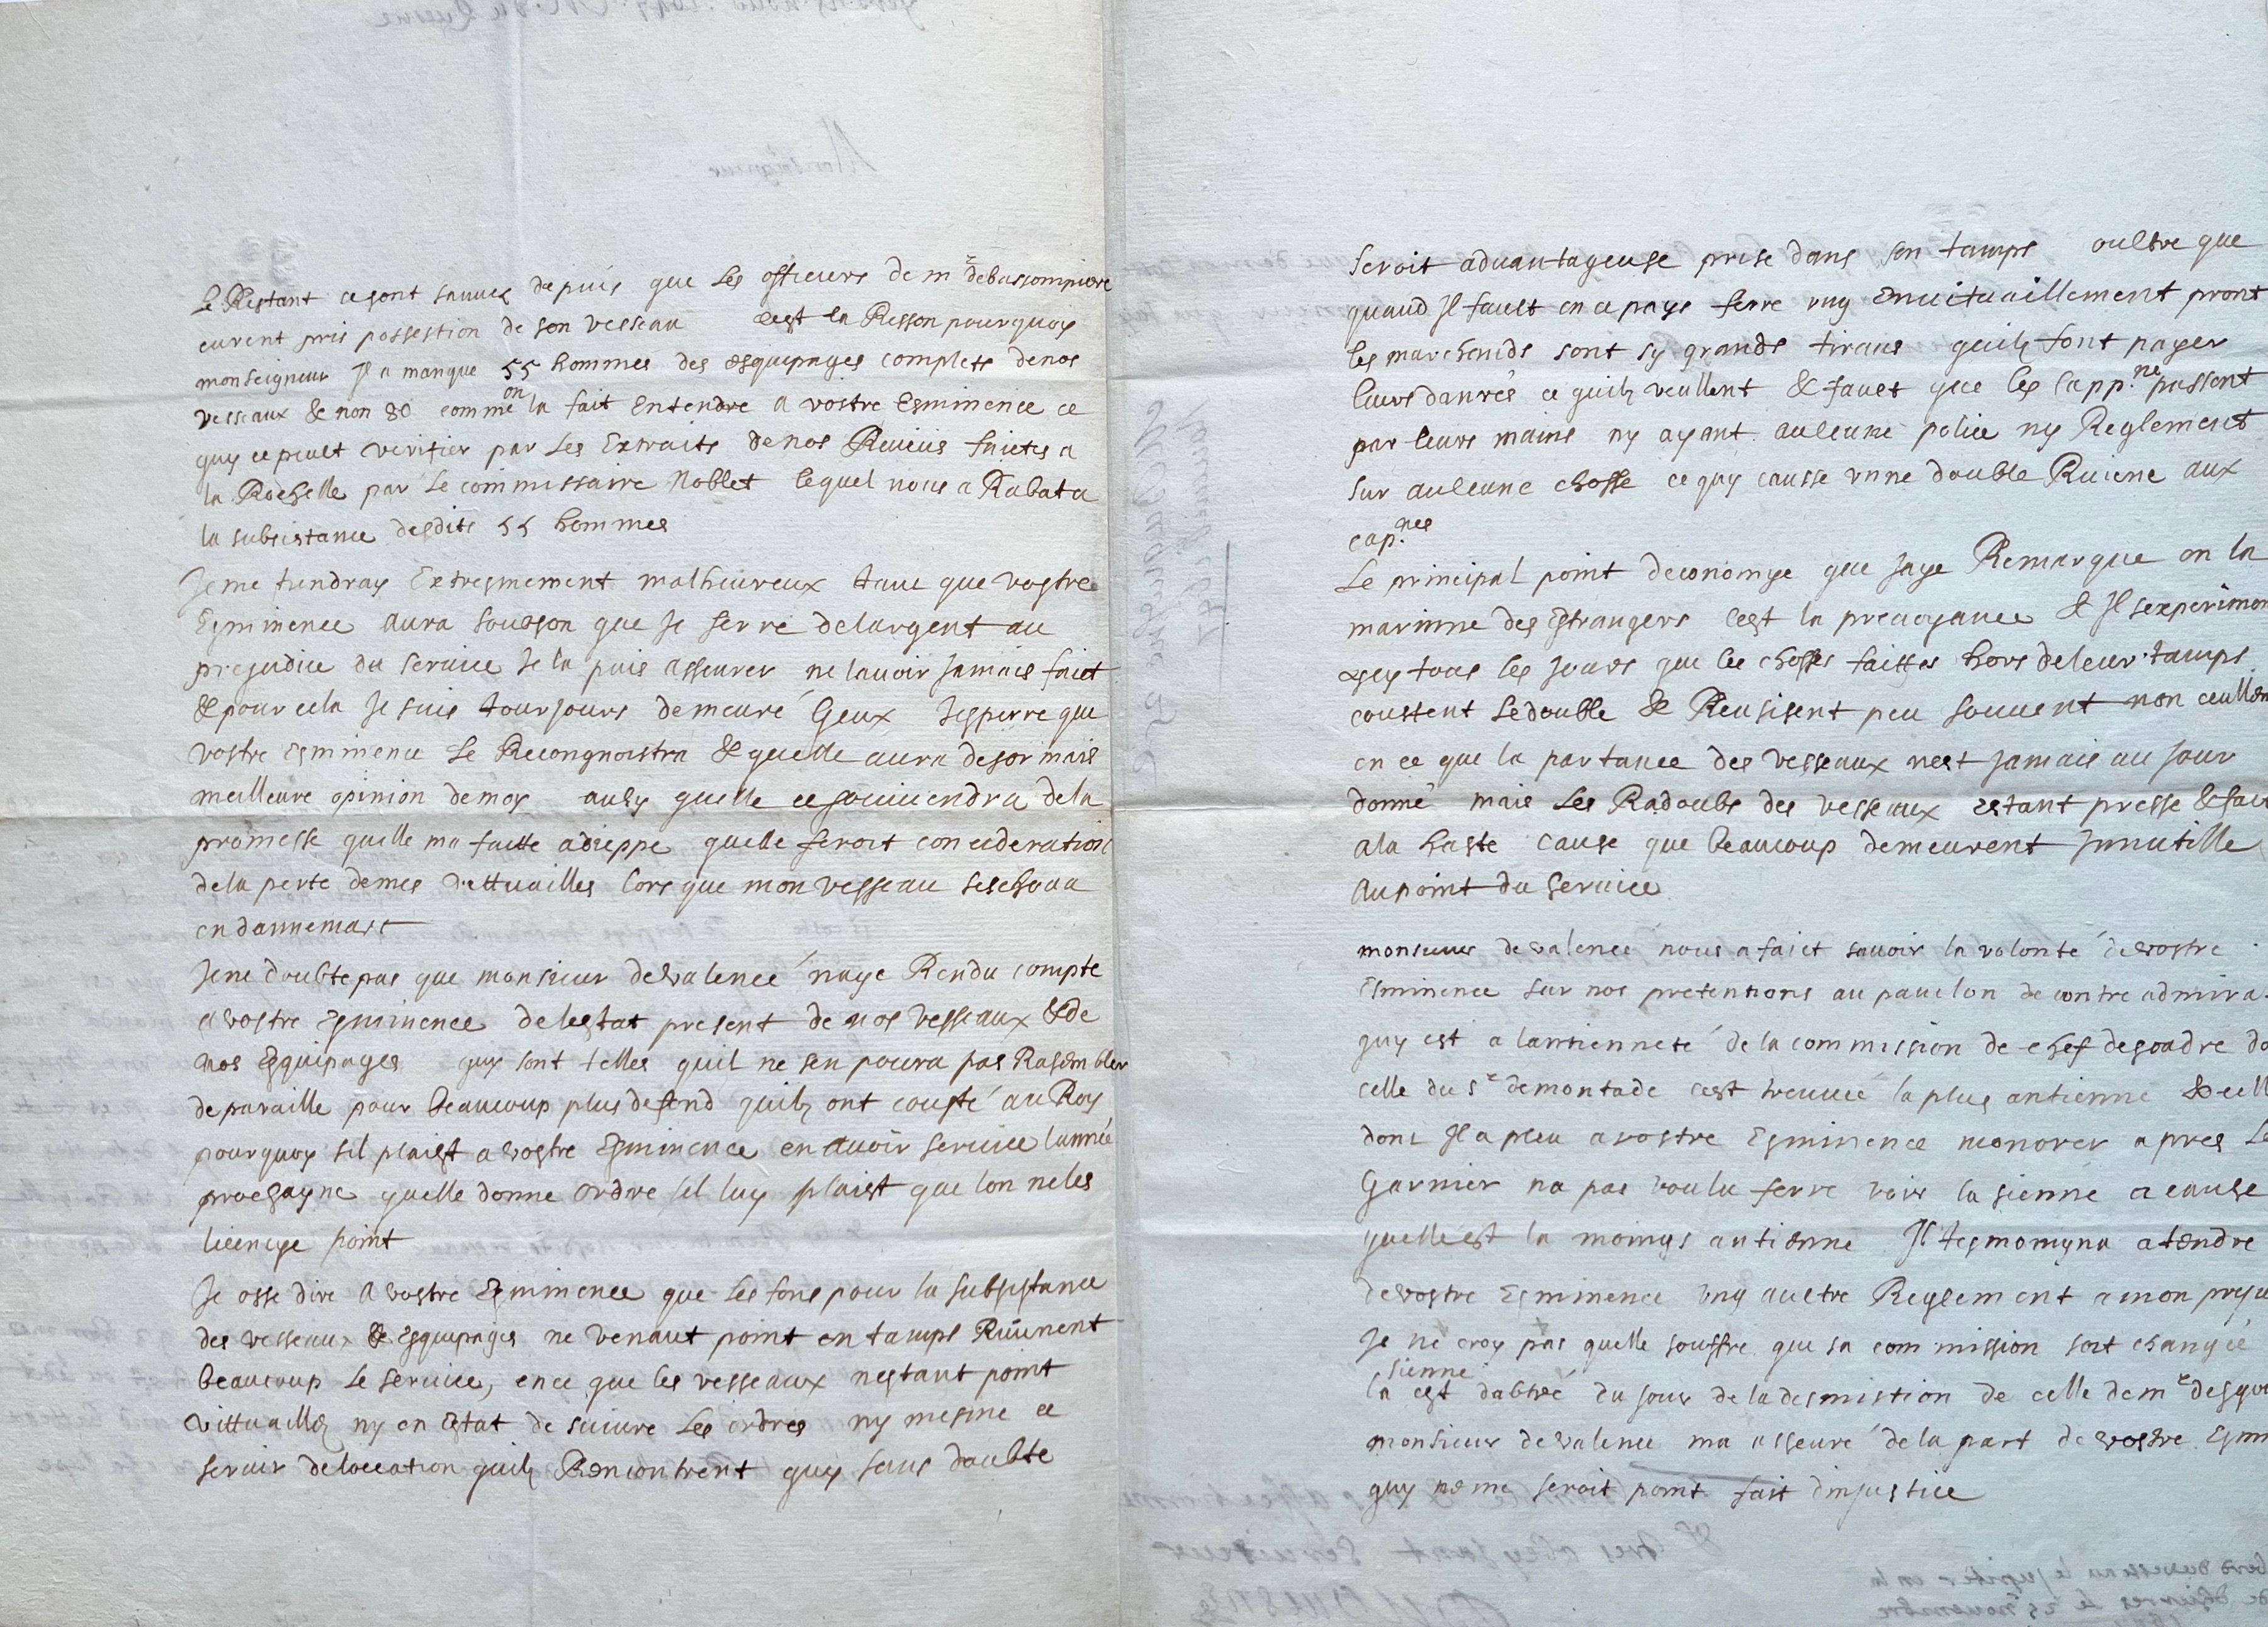 le Restant ce sont sauvez depuis que les officiers de mr de bassompiere
eurent pris possestion de son vesseau cest la Resson pourquoy
monseigneur Il a manque 55 hommes des esquipages complets de nos
vesseaux & non 80 comme on la fait entendre a vostre Esminence ce
quy ce peult verifier par les Extraits de nos Reveues faictes a
la Rochelle par le commissaire Noblet lequel nous a Rabatu
la subsistance desdits 55 hommes
Je me tiendray Extresmement malheureux tant que vostre
Esminence aura soubson que Je serre de largent au
prejudice du service Je la puis asseurer ne lavoir Jamais faict
& pour cela Je suis tousjours demeuré Geux Jesperre que
vostre esminence le Recongnoistra & quelle aura desormais
meilleure opinion de moy ausy quelle ce souviendra de la
promesse quelle ma faitte a dieppe quelle feroit concideration
de la perte de mes vittuailles lors que mon vesseau seschoua
en dannemarc
Je ne doubte pas que monsieur de valencé naye Rendu compte
a vostre esminence de lestat present de nos vesseaux & de
nos esquipages quy sont telles quil ne sen poura pas Rasembler
de paraille pour beaucoup plus defend quilz ont cousté au Roy
pourquoy sil plaist a vostre Esminence en avoir service lannée
prochayne quelle donne ordre sil luy plaist que lon ne les
licencye point
Je osse dire a vostre esminence que les fons pour la subsistance
des vesseaux & esquipages ne venant point en tamps Ruinent
beaucoup le service, en ce que les vesseaux nestant point
vittuaillez ny en Estat de suivre les ordres ny mesme ce
servir de loccation quilz Rencontrent quy sans doubte
seroit advantageuse prise dans son tamps oultre que
quand Il fault en ce pays ferre ung envituaillement pront
les marchands sont sy grands tirans quilz font payer
leurs danrés ce quilz veullent & fault que les capp.nes passent
par leurs mains ny ayant auleune police ny Reglement
sur auleune chosse ce quy causse unne double Ruiene aux
cap.nes
Le principal point deconomye que Jaye Remarque en la
marinne des Estrangers cest la prevoyance & Il sexperimen
icy tous les Jours que les chosses faittes hors de leur tamps
coustent le double & Reusisent peu souvent non ceullem
en ce que la partance des vesseaux nest Jamais au Jour
donné mais les Radoubs des vesseaux estant presse & fai
a la haste cause que beaucoup demeurent Innutille
au point du service
monsieur de valencé nous a faict savoir la volonté de vostre
Esminence sur nos pretentions au pavelon de contre admira
quy est a lantienneté de la commission de chef descadre do
celle du sr de montade cest treuvée la plus antienne & cell
dont Il a pleu a vostre Esminence monorer apres Le
Garnier na pas voulu ferre voir la sienne a cause
quelle est la moings antienne Il tesmoingna atendre
de vostre Esminence ung aultre Reglement a mon preju
Je ne croy pas quelle souffre que sa commission soit changée
sienne
la est dabtté du Jour de la desmistion de celle de mr desgou
monsieur de valence ma asseuré de la part de vostre Esmi
quy ne me seroit point fait dinjustice